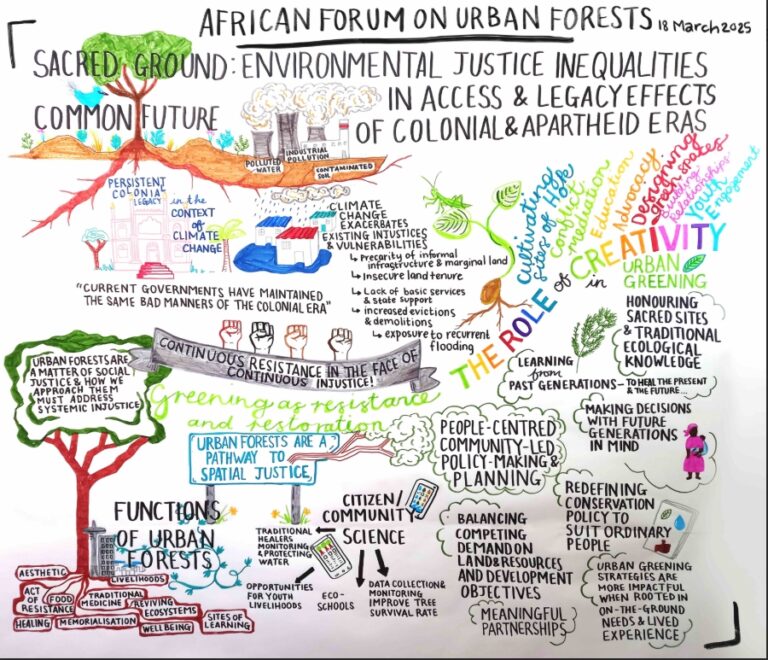 AFRICAN FORUM ON URBAN FORESTS 18 March 2025
SACRED GROUND: ENVIRONMENTAL JUSTICE INEQUALITIES
COMMON FUTURE
IN ACCESS & LEGACY EFFECTS
OF COLONIAL & APARTHEID ERAS
POLLUTED
WATER
INDUSTRIAL
POLLUTION
CONTAMINATED
SOIL
PERSISTENT
COLONIAL
LEGACY
in the
CONTEXT
of
CLIMATE
CHANGE
CLIMATE
CHANGE
EXACERBATES
EXISTING INJUSTICES
& VULNERABILITIES
Precarity of informal
infrastructure & marginal land
Insecure land tenure
Lack of basic services
& state support
increased evictions
& demolitions
exposure to recurrent
flooding
"CURRENT GOVERNMENTS HAVE MAINTAINED
THE SAME BAD MANNERS OF THE COLONIAL ERA"
THE ROLE of CREATIVITY
in URBAN
GREENING
Cultivating
Sites of Hope
Conflict
mediation
Education
Advocacy
Designing
green spaces
Building
Relationships
Youth
Engagement
CONTINUOUS RESISTANCE IN THE FACE OF
CONTINUOUS INJUSTICE!
URBAN FORESTS ARE
A MATTER OF SOCIAL
JUSTICE & HOW WE
APPROACH THEM
MUST ADDRESS
SYSTEMIC INJUSTICE
Greening as resistance
and restoration
URBAN FORESTS ARE A
PATHWAY TO
SPATIAL JUSTICE
PEOPLE-CENTRED
COMMUNITY-LED
POLICY-MAKING &
PLANNING
LEARNING
from
PAST GENERATIONS – TO HEAL THE PRESENT
& THE FUTURE...
HONOURING
SACRED SITES
& TRADITIONAL
ECOLOGICAL
KNOWLEDGE
MAKING DECISIONS
WITH FUTURE
GENERATIONS
IN MIND
FUNCTIONS
OF URBAN
FORESTS
AESTHETIC
LIVELIHOODS
ACT
OF
RESISTANCE
FOOD
TRADITIONAL
MEDICINE
REVIVING
ECOSYSTEMS
HEALING
MEMORIALISATION
WELLBEING
SITES OF
LEARNING
CITIZEN/
COMMUNITY
SCIENCE
TRADITIONAL
HEALERS
MONITORING
& PROTECTING
WATER
OPPORTUNITIES
FOR YOUTH
LIVELIHOODS
ECO-
SCHOOLS
DATA COLLECTION &
MONITORING
IMPROVE TREE
SURVIVAL RATE
BALANCING
COMPETING
DEMAND ON
LAND & RESOURCES
AND DEVELOPMENT
OBJECTIVES
MEANINGFUL
PARTNERSHIPS
REDEFINING
CONSERVATION
POLICY TO
SUIT ORDINARY
PEOPLE
URBAN GREENING
STRATEGIES ARE
MORE IMPACTFUL
WHEN ROOTED IN
ON-THE-GROUND
NEEDS & LIVED
EXPERIENCE